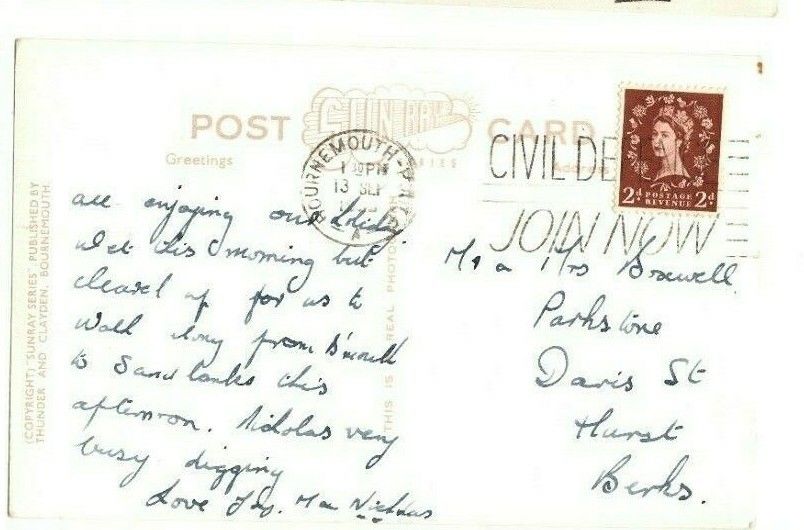 POST CARD
SUNRAY
SERIES
Greetings
Address
BOURNEMOUTH-POOLE
1 30PM
13 SEP
A
CIVIL DE
JOIN NOW
2d POSTAGE REVENUE 2d
(COPYRIGHT) "SUNRAY SERIES" PUBLISHED BY
THUNDER AND CLAYDEN, BOURNEMOUTH.
THIS IS REAL PHOTO
all enjoying our holiday
Wet this morning but
cleared up for us to
walk along from B'mouth
to Sandbanks this
afternoon. Nicholas very
busy digging
Love Nicholas
Mr & Mrs Braxwell
Parkstone
Davis St
Hurst
Berks.